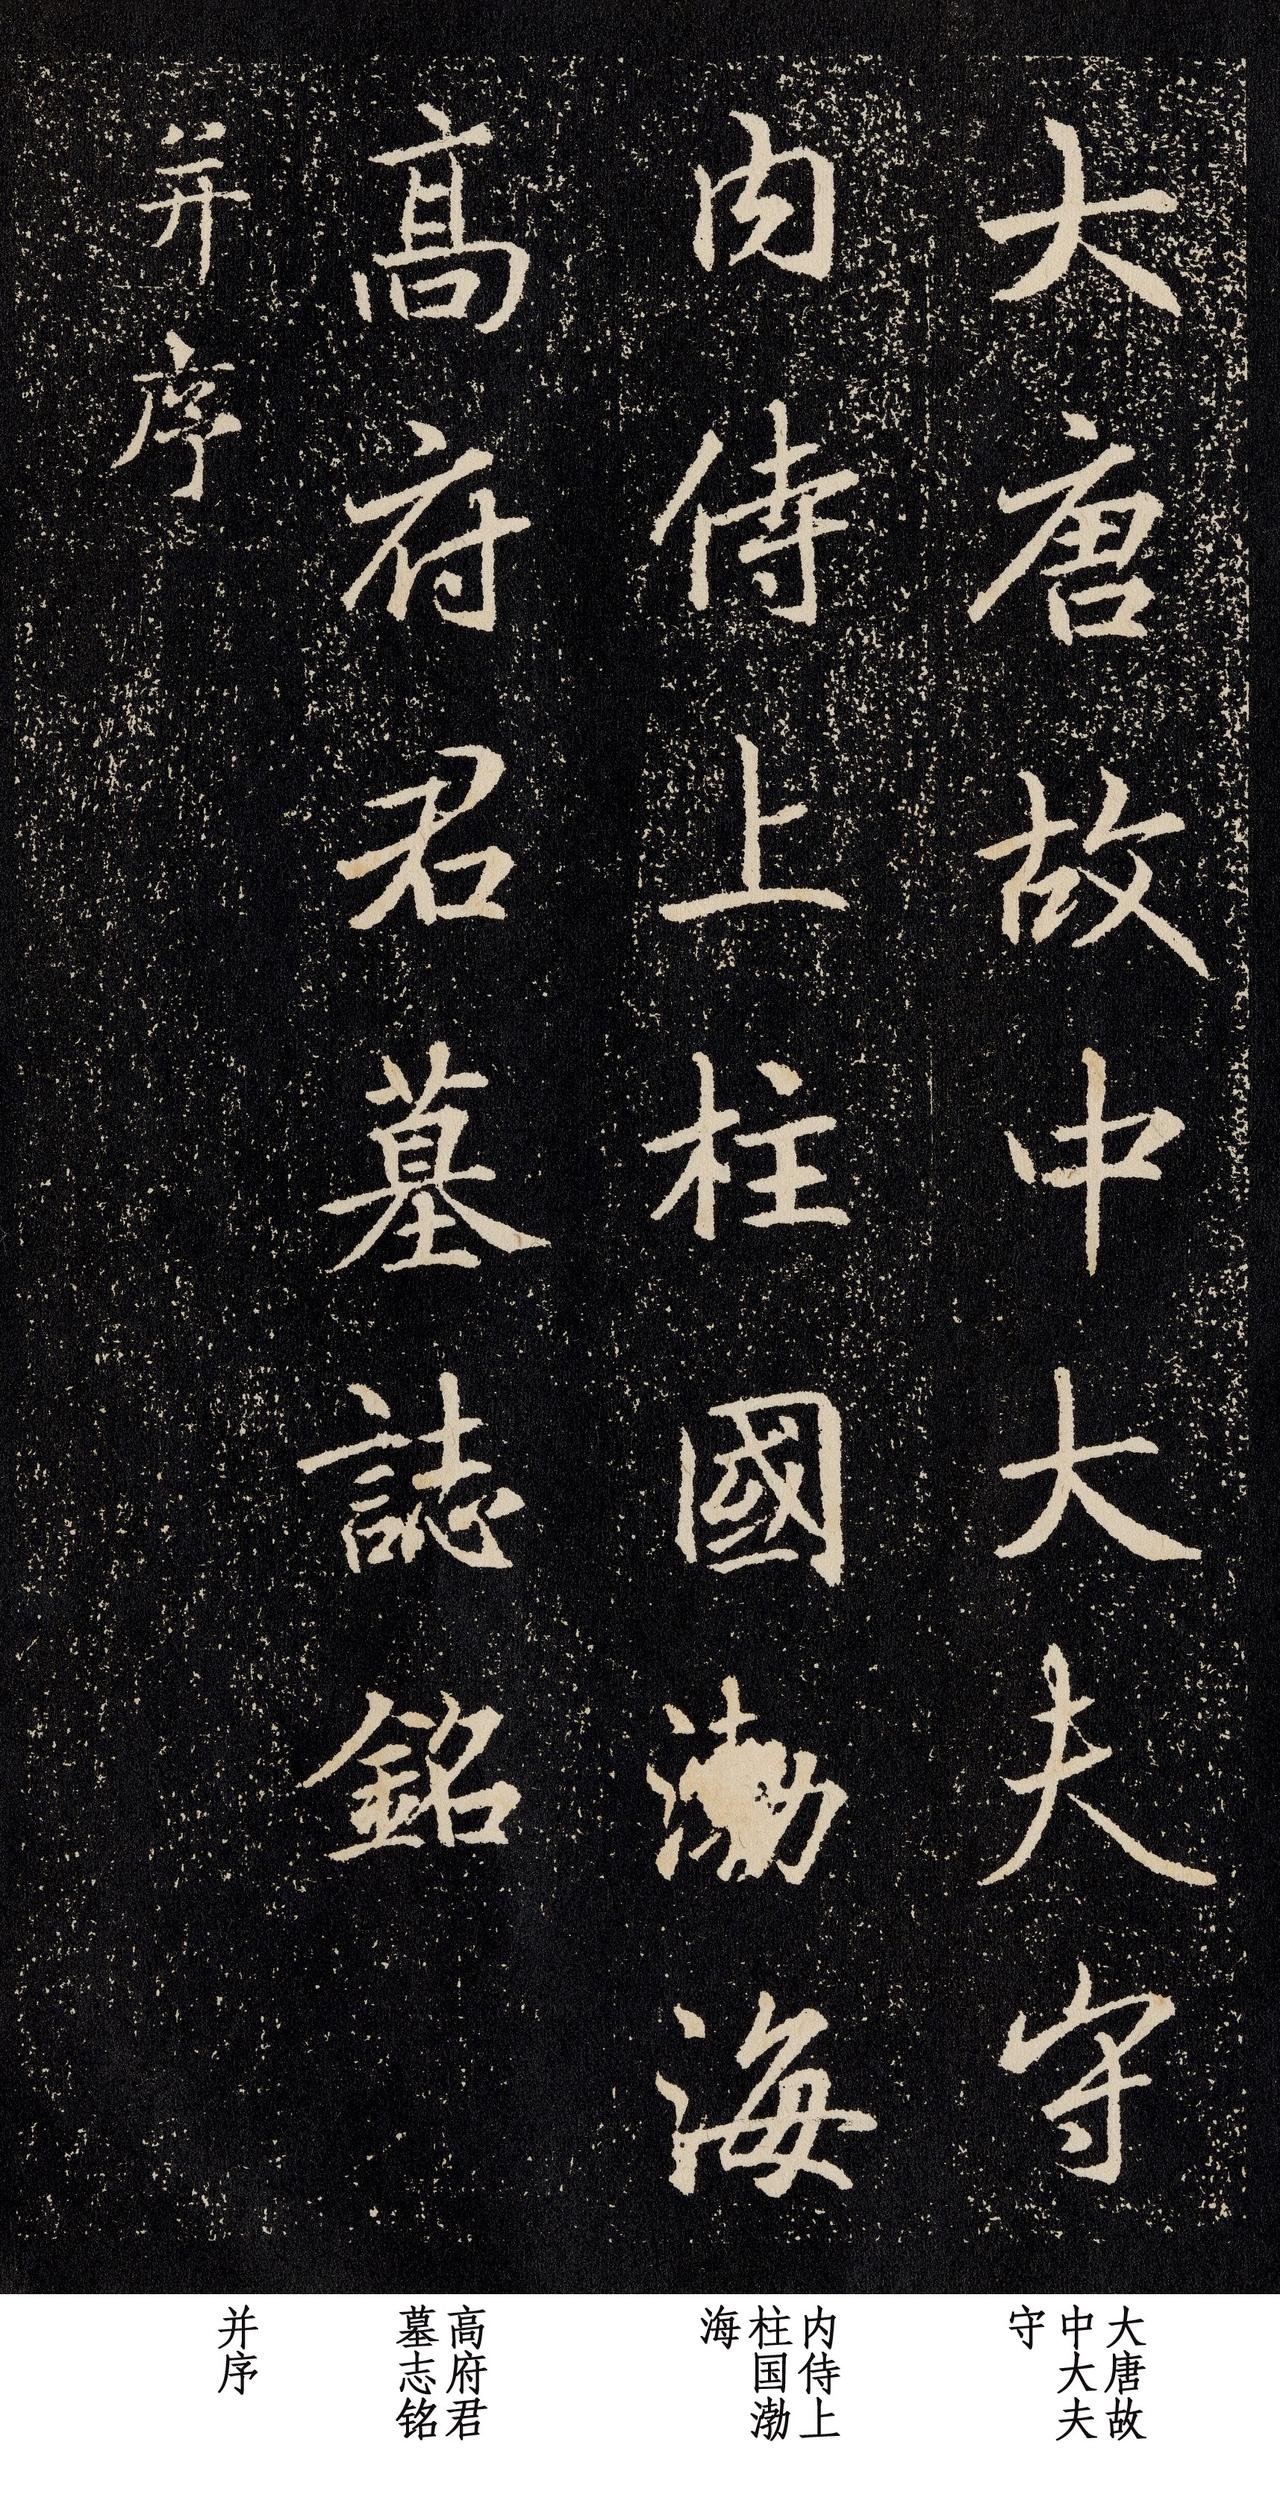 大唐故中大夫守
内侍上柱國渤海
高府君墓誌銘
并序
大唐故
中大夫
守
内侍上
柱国渤
海
高府君
墓志铭
并序